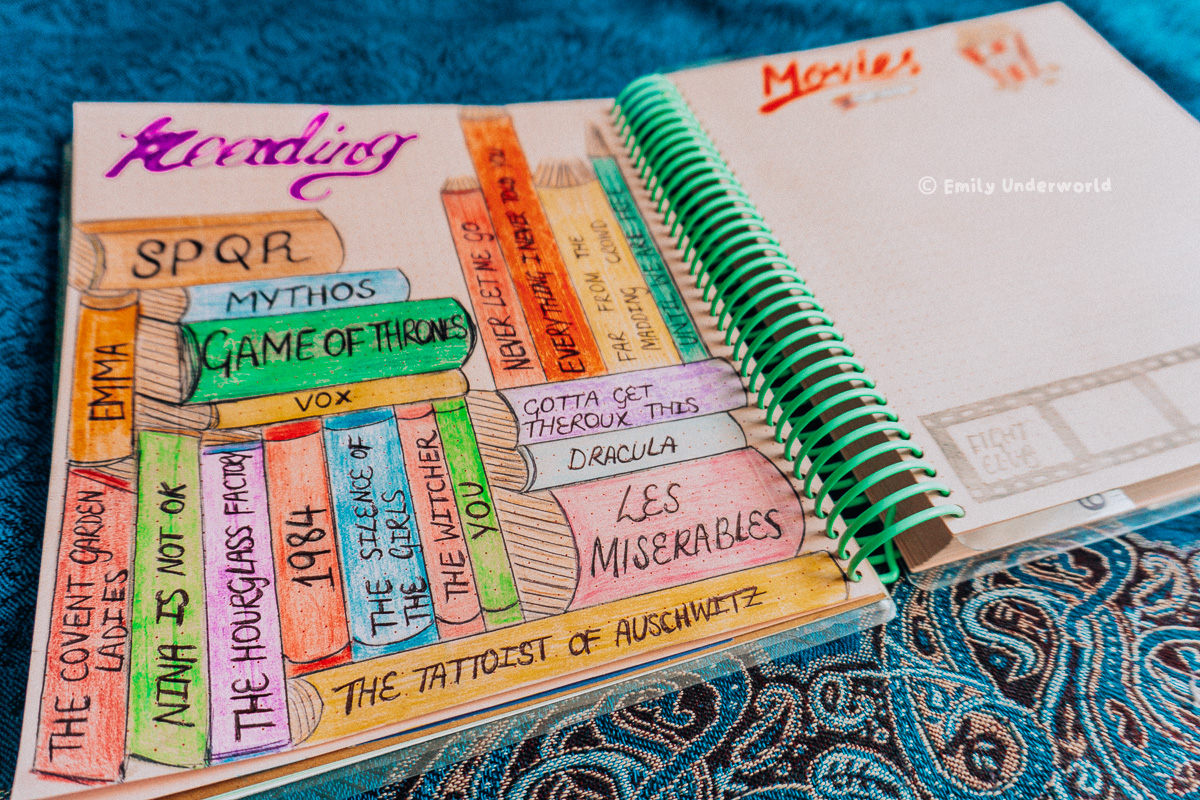 Reading
SPQR
MYTHOS
GAME OF THRONES
VOX
EMMA
THE COVENT GARDEN
LADIES
NINA IS NOT OK
THE HOURGLASS FACTORY
1984
THE SILENCE OF
THE GIRLS
THE
THE WITCHER
YOU
NEVER LET ME GO
EVERYTHING I NEVER TOLD YOU
FAR FROM THE
MADDING CROWD
UNTIL WE ARE FREE
GOTTA GET
THEROUX THIS
DRACULA
LES
MISERABLES
THE TATTOIST OF AUSCHWITZ
Movies
© Emily Underworld
FIGHT
CLUB